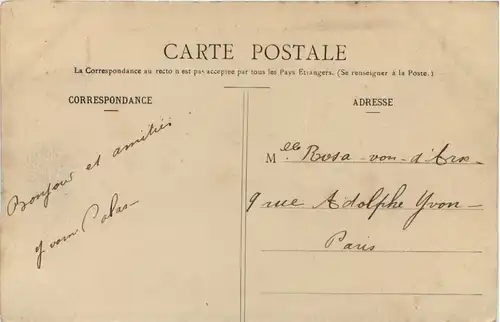 CARTE POSTALE
La Correspondance au recto n'est pas acceptée par tous les Pays Étrangers. (Se renseigner à la Poste.)
CORRESPONDANCE
Bonjour et amitiés
ADRESSE
Mlle Rosa-von-d'
9 rue Adolphe Yvon-
Paris